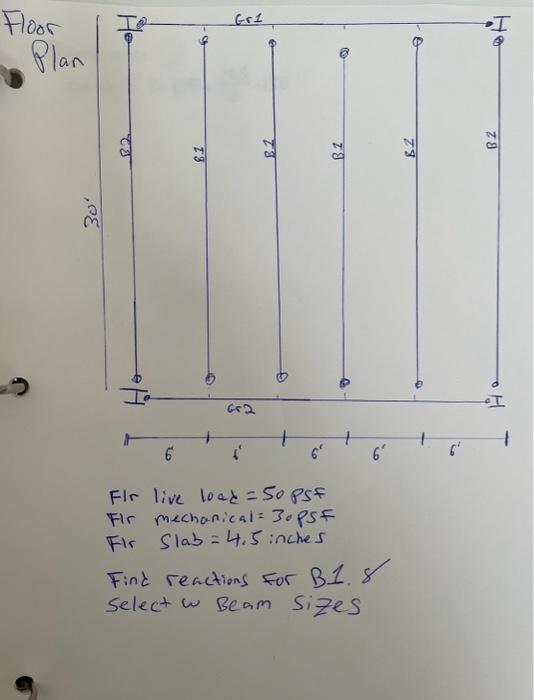 Floor
Plan
Gr1
30'
B2
B1
B1
B1
B1
B1
Gr2
6' 6' 6' 6' 6'
Flr live load = 50 psf
Flr mechanical = 30 psf
Flr Slab = 4.5 inches
Find reactions for B1. &
Select W Beam Sizes